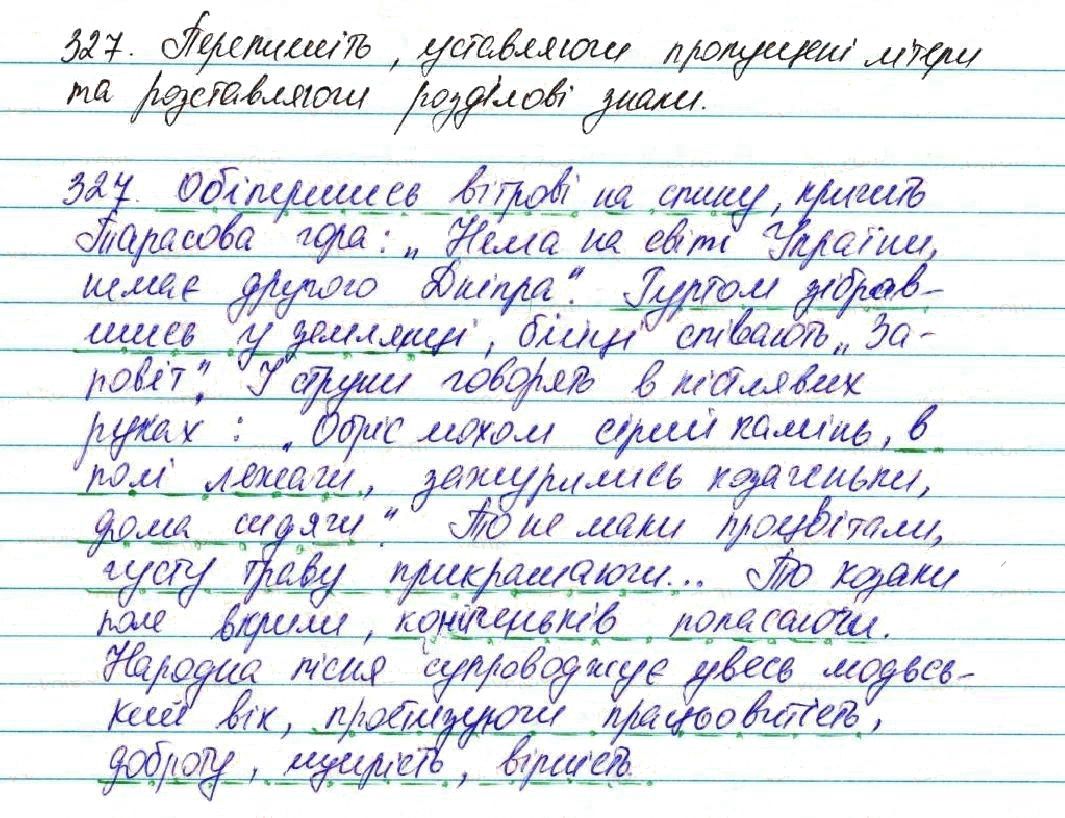 327. Перепишіть, уставляючи пропущені літери
та розставляючи розділові знаки.
327. Обіпершись вітрові на спину, кричить
Тарасова гора: „Нема на світі України,
немає другого Дніпра". Гуртом зібрав-
шись у землянці, бійці співають „За-
повіт". І струни говорять в кістлявих
руках: „Обріс мохом сірий камінь, в
полі лежачи, зажурились козаченьки,
дома сидячи". То не маки процвітали,
густу траву прикрашаючи... То козаки
поле вкрили, коніченьків попасаючи.
Народна пісня супроводжує увесь людсь-
кий вік, проти працьовитість,
доброту, мужність, вірність.